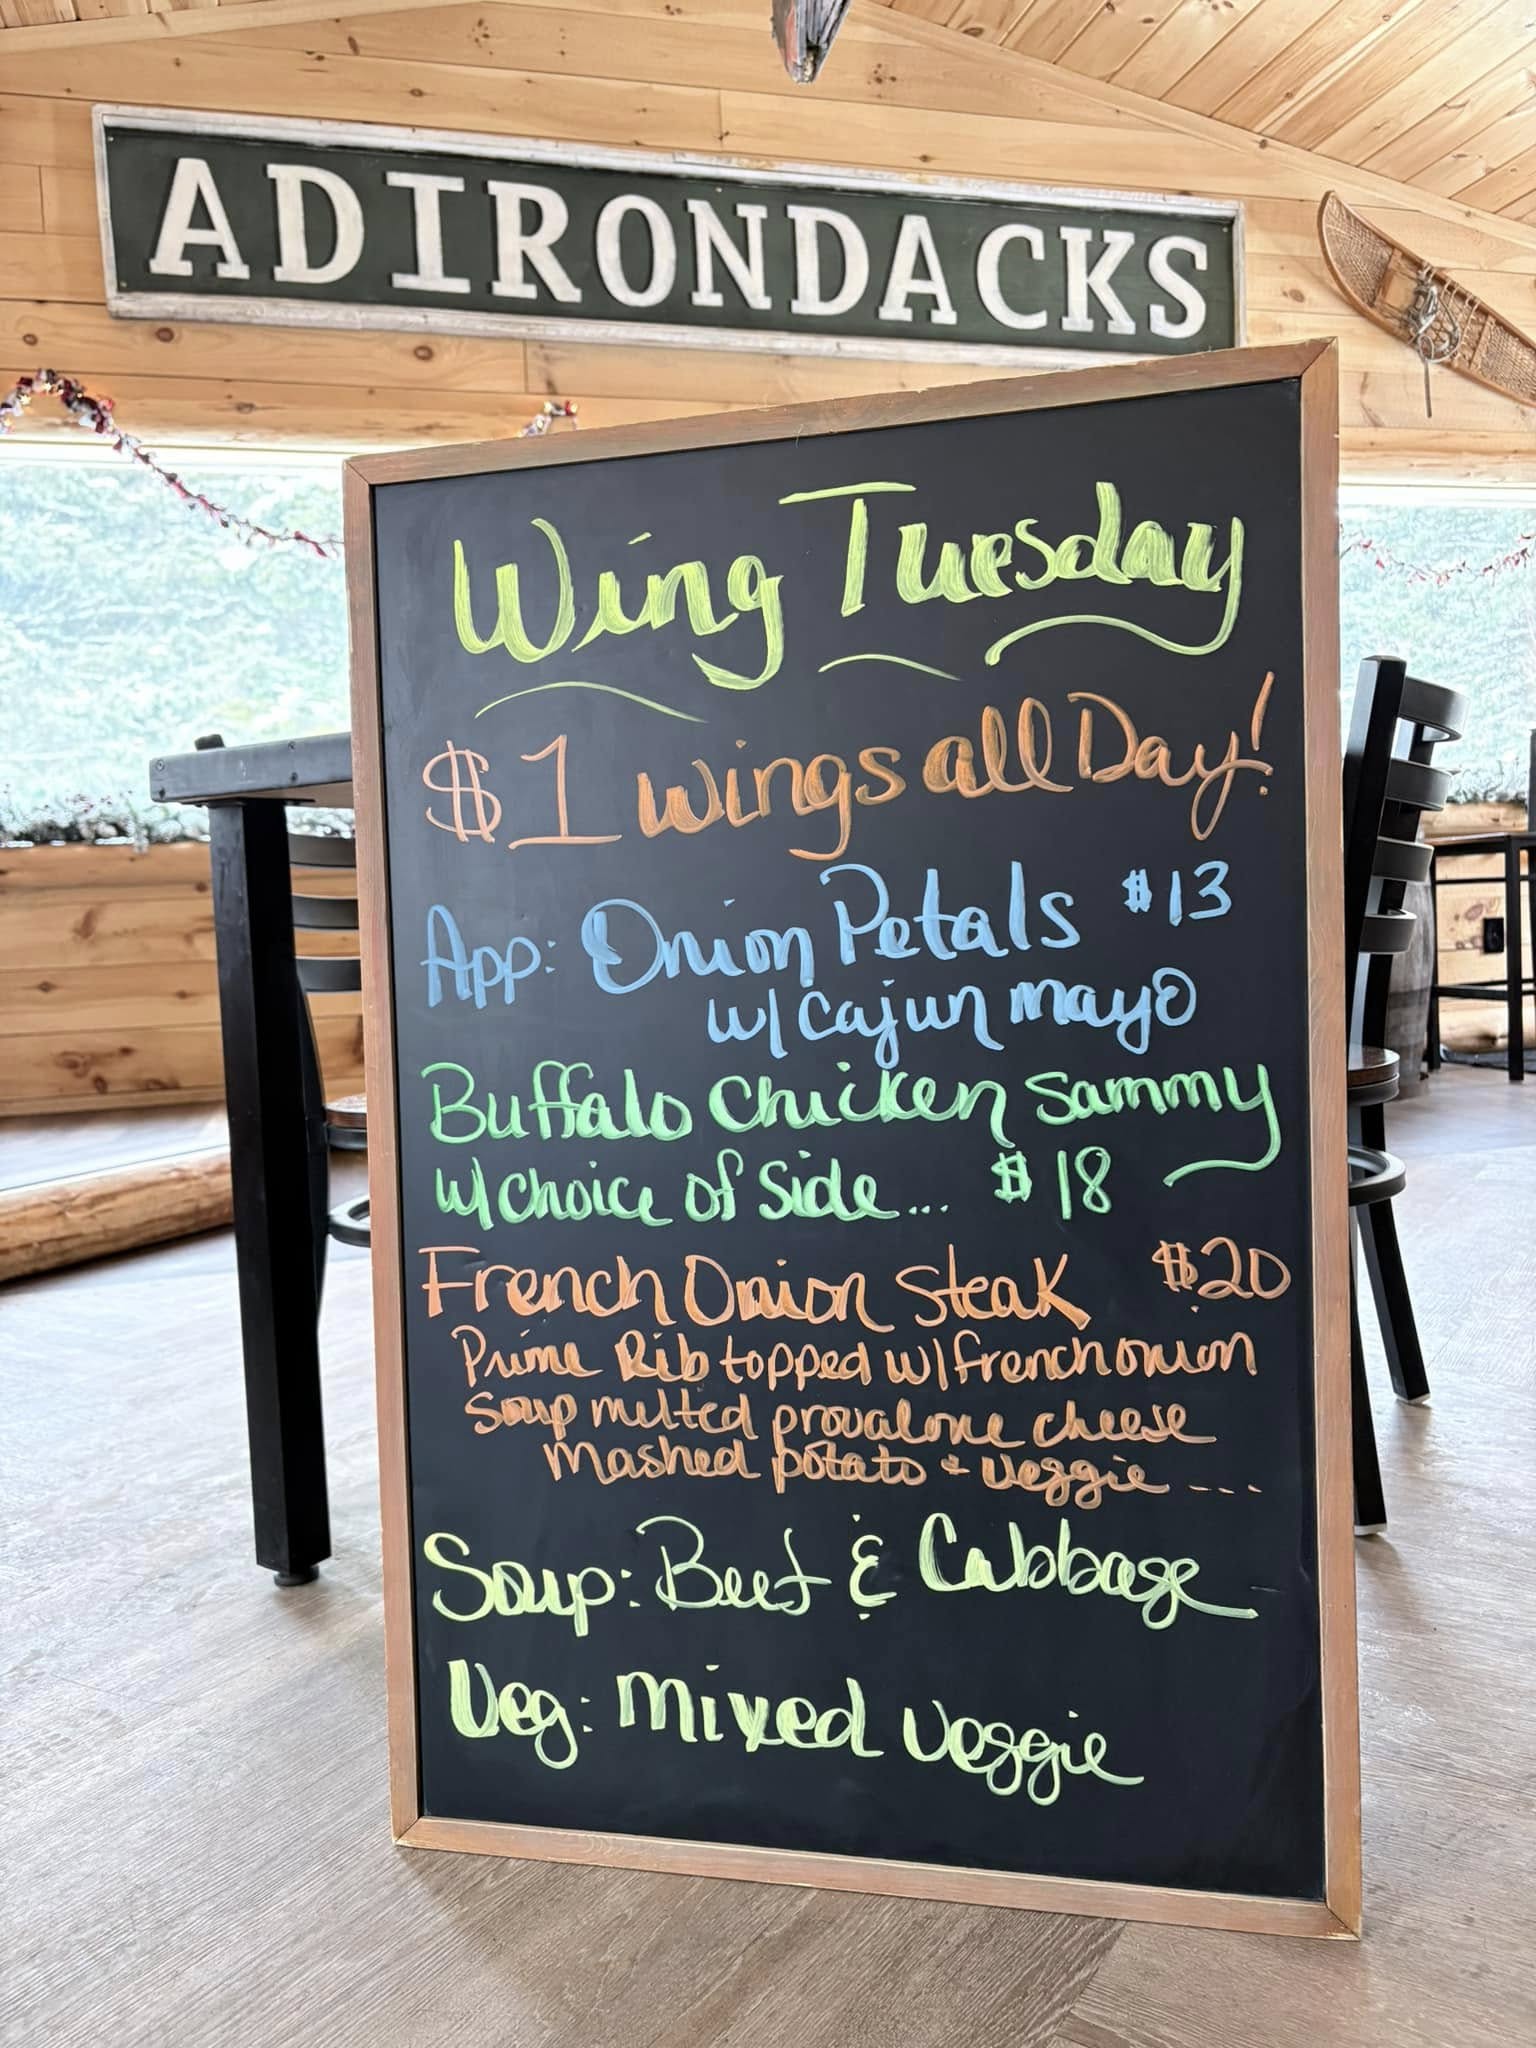 ADIRONDACKS
Wing Tuesday
$1 wings all Day!
App: Onion Petals $13
w/ cajun mayo
Buffalo Chicken Sammy
w/ choice of side... $18
French Onion Steak $20
Prime Rib topped w/ french onion
Soup melted provalone cheese
mashed potato + veggie ....
Soup: Beef & Cabbage
Veg: mixed veggie